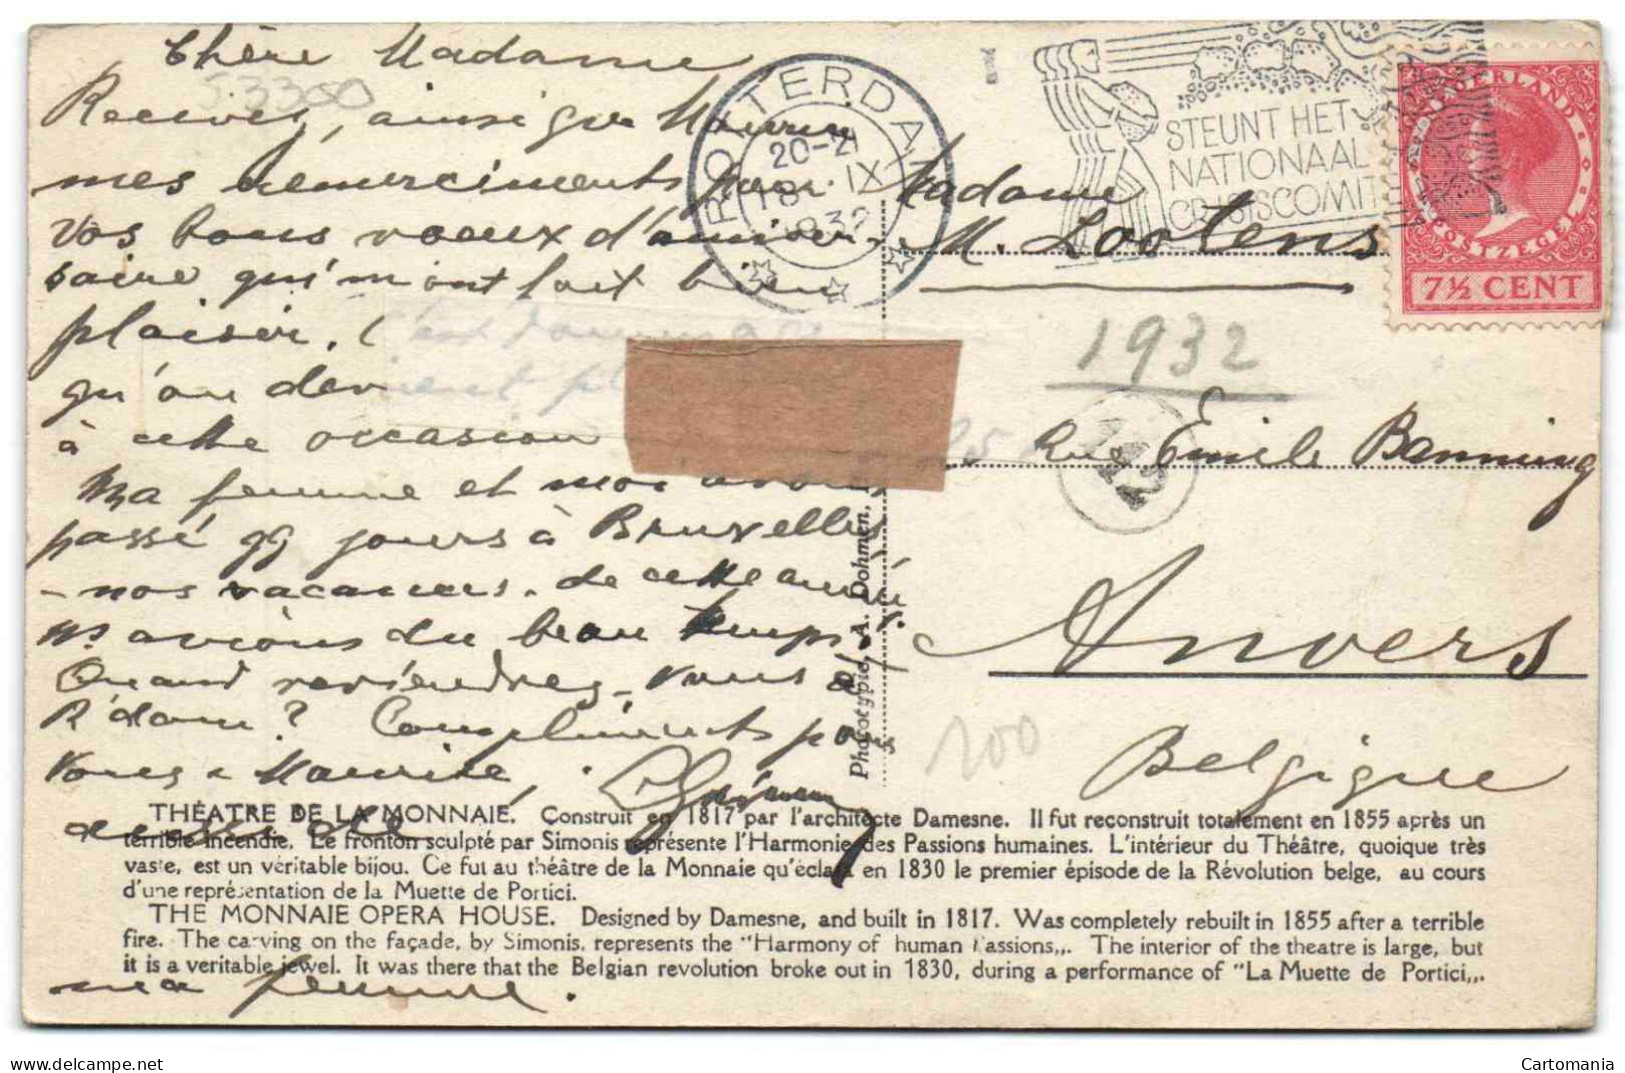 Chère Madame
53300
Recevez, ainsi que Maurice
mes remerciments pour
vos bons voeux d'anniver-
saire qui m'ont fait bien
plaisir. (
qu'on
à cette occasion
Ma femme et moi avons
passé qq jours à Bruxelles
- nos vacances. de cette année
Ns avions du beau temps.
Quand reviendrez-vous à
R'dam? Compliments pour
vous & Maurice,
ma femme.
ROTTERDAM
20-21
18 IX
1932
STEUNT HET
NATIONAAL
CRISISCOMITÉ
NEDERLAND
POSTZEGEL
7½ CENT
Madame
M. Lootens
1932
112
Rue Emile Banning
Anvers
Belgique
100
Phototypie, A. Dohmen,
THÉATRE DE LA MONNAIE. Construit en 1817 par l'architecte Damesne. Il fut reconstruit totalement en 1855 après un
terrible incendie. Le fronton sculpté par Simonis représente l'Harmonie des Passions humaines. L'intérieur du Théâtre, quoique très
vaste, est un véritable bijou. Ce fut au théâtre de la Monnaie qu'éclata en 1830 le premier épisode de la Révolution belge, au cours
d'une représentation de la Muette de Portici.
THE MONNAIE OPERA HOUSE. Designed by Damesne, and built in 1817. Was completely rebuilt in 1855 after a terrible
fire. The carving on the façade, by Simonis, represents the "Harmony of human Passions,,. The interior of the theatre is large, but
it is a veritable jewel. It was there that the Belgian revolution broke out in 1830, during a performance of "La Muette de Portici,,.
Cartomania